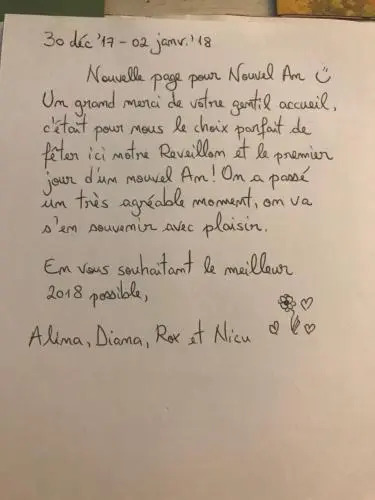 30 déc '17 - 02 janv. '18
Nouvelle page pour Nouvel An
Un grand merci de votre gentil accueil,
c'était pour nous le choix parfait de
fêter ici notre Reveillon et le premier
jour d'un nouvel An! On a passé
un très agréable moment, on va
s'en souvenir avec plaisir.
En vous souhaitant le meilleur
2018 possible,
Alina, Diana, Rox et Nicu